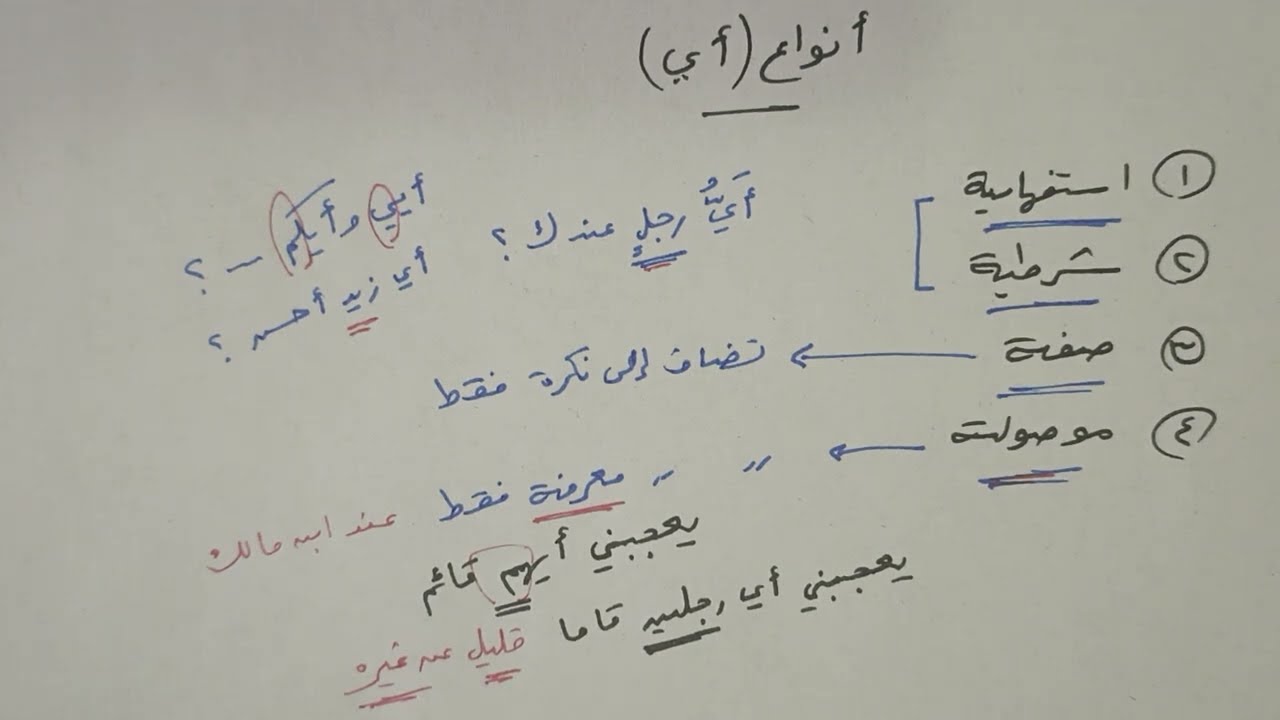 أنواع (أي)
١ استفهامية
أَيُّ رجلٍ عندك ؟
أيي وأيكم — ؟
٢ شرطية
أي زيد أحسن ؟
٣ صفة ← تضاف إلى نكرة فقط
٤ موصولة ← 〃 〃 معرفة فقط عند ابن مالك
يعجبني أيهم قائم
يعجبني أي رجلين قاما قليل عن غيره